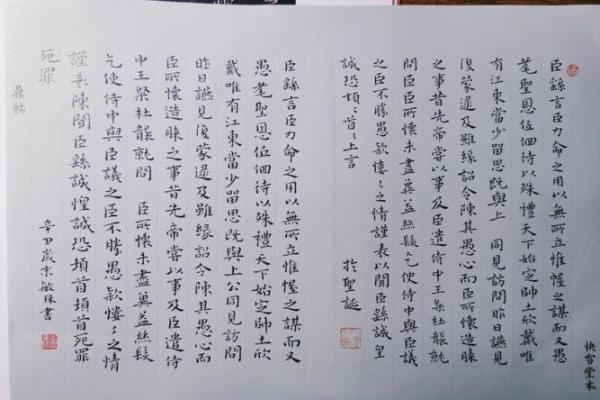 快雪堂本
臣繇言臣力命之用以無所立惟幄之謀而又愚
耄聖恩低佪待以殊禮天下始定帥土欣戴唯
有江東當少留思既與上 同見訪問昨日讌見
復蒙逮及雖緣詔令陳其愚心而臣所懷造膝
之事昔先帝嘗以事及臣遣侍中王粲杜襲就
問臣臣所懷未盡冀益絲髮乞使侍中與臣議
之臣不勝愚款悽〻之情謹表以聞臣繇誠皇
誠恐頓〻首〻上言
於聖誕
臣繇言臣力命之用以無所立惟幄之謀而又
愚耄聖恩低佪待以殊禮天下始定帥土欣
戴唯有江東當少留思既與上公同見訪問
昨日讌見復蒙逮及雖緣詔令陳其愚心而
臣所懷造膝之事昔先帝嘗以事及臣遣侍
中王粲杜襲就問 臣所懷未盡冀益絲髮
乞使侍中與臣議之臣不勝愚款悽〻之情
謹表陳聞臣繇誠惶誠恐頓首頓首死罪
死罪
鼎帖
辛丑歲末敏珠書